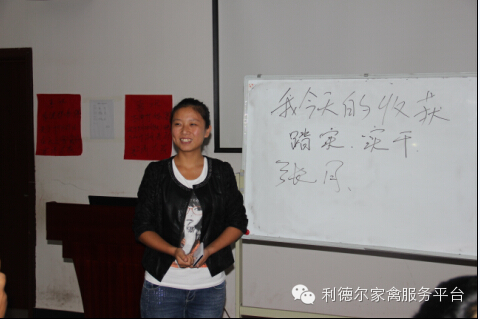 我今天的收获
踏实、实干
利德尔家禽服务平台